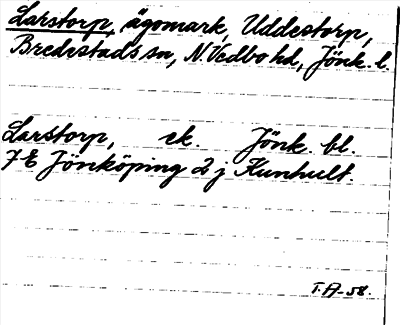 Larstorp, ägomark, Uddestorp,
Bredestads sn, N. Vedbo hd, Jönk. l.
Larstorp, ek. Jönk. bl.
7 E Jönköping 2 j Kunhult.
T. A-58.